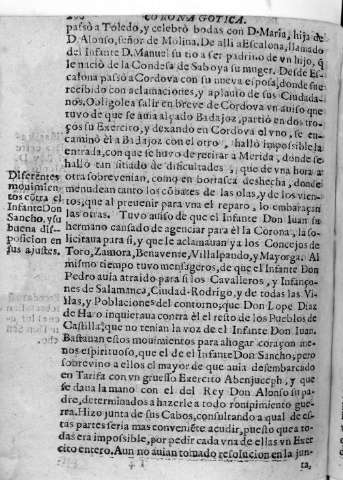 CORONA GOTICA.
passò à Toledo, y celebrò bodas con D. Maria, hija de
D. Alonso, señor de Molina. De alli a Escalona, llamado
del Infante D. Manuel su tio a ser padrino de vn hijo, q̃
le nació de la Condesa de Saboya su muger. Desde Es-
calona passò a Cordova con su nueva esposa, donde fue
recibido con aclamaciones, y aplauso de sus Ciudada-
nos. Obligòle a salir en breve de Cordova vn auiso que
tuvo de que se auia alçado Badajoz, partiò en dos tro-
ços su Exercito, y dexando en Cordova el vno, se en-
caminò el a Badajoz con el otro, hallò impossible la
entrada, con que se huvo de retirar a Merida, donde se
hallò tan sitado de dificultades, que de vna hora a
otra sobrevenian, como en borrasca deshecha, donde
menudean tanto los cõbates de las olas, y de los vien-
tos, que al prevenir para vna el reparo, lo embaraçan
las otras. Tuvo auiso de que el Infante Don Iuan su
hermano cansado de agenciar para èl la Corona, la so-
licitaua para sì, y que le aclamauan ya los Concejos de
Toro, Zamora, Benavente, Villalpando, y Mayorga. Al
mismo tiempo tuvo mensageros, de que el Infante Don
Pedro auia atraido para sì los Cavalleros, y Infanço-
nes de Salamanca, Ciudad-Rodrigo, y de todas las Vi-
llas, y Poblaciones del contorno; que Don Lope Diaz
de Haro inquietaua contra èl el resto de los Pueblos de
Castilla, que no tenian la voz de el Infante Don Iuan.
Bastauan estos movimientos para ahogar coraçon me-
nos espirituoso, que el de el Infante Don Sancho; pero
sobrevino a ellos el mayor de que auia desembarcado
en Tarifa con vn gruesso Exercito Abenjuceph, y que
se daua la mano con el del Rey Don Alonso su pa-
dre, determinados a hazerle a todo rompimiento gue-
rra. Hizo junta de sus Cabos, consultando a qual de es-
tas partes seria mas conveniẽte acudir, puesto que a to-
das era impossible, por pedir cada vna de ellas vn Exer-
cito entero. Aun no auian tomado resolucion en la jun-
ta,
Diferentes
movimien-
tos cõtra el
Infante Don
Sancho, y su
buena dis-
posicion en
sus ajustes.